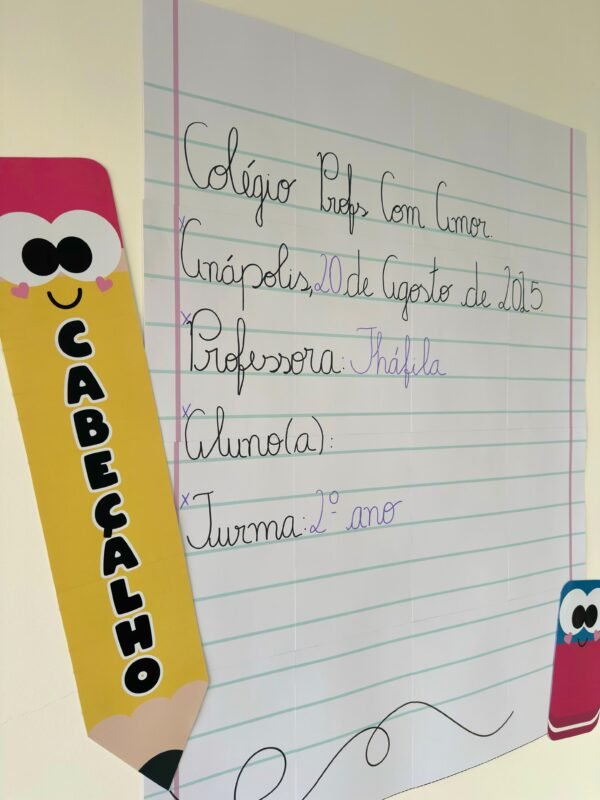 CABEÇALHO
Colégio Profs Com Amor.
x Anápolis, 20 de Agosto de 2025
x Professora: Tháfila
x Aluno(a):
x Turma: 2º ano